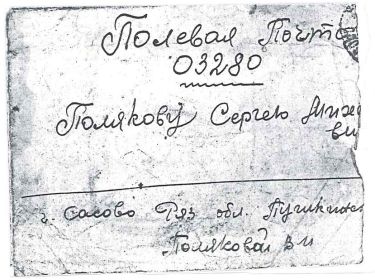 Полевая Почт
03280
Полякову Сергею Мих
ви
г. Сасово Ряз обл. Пушкинск
Поляковой В И